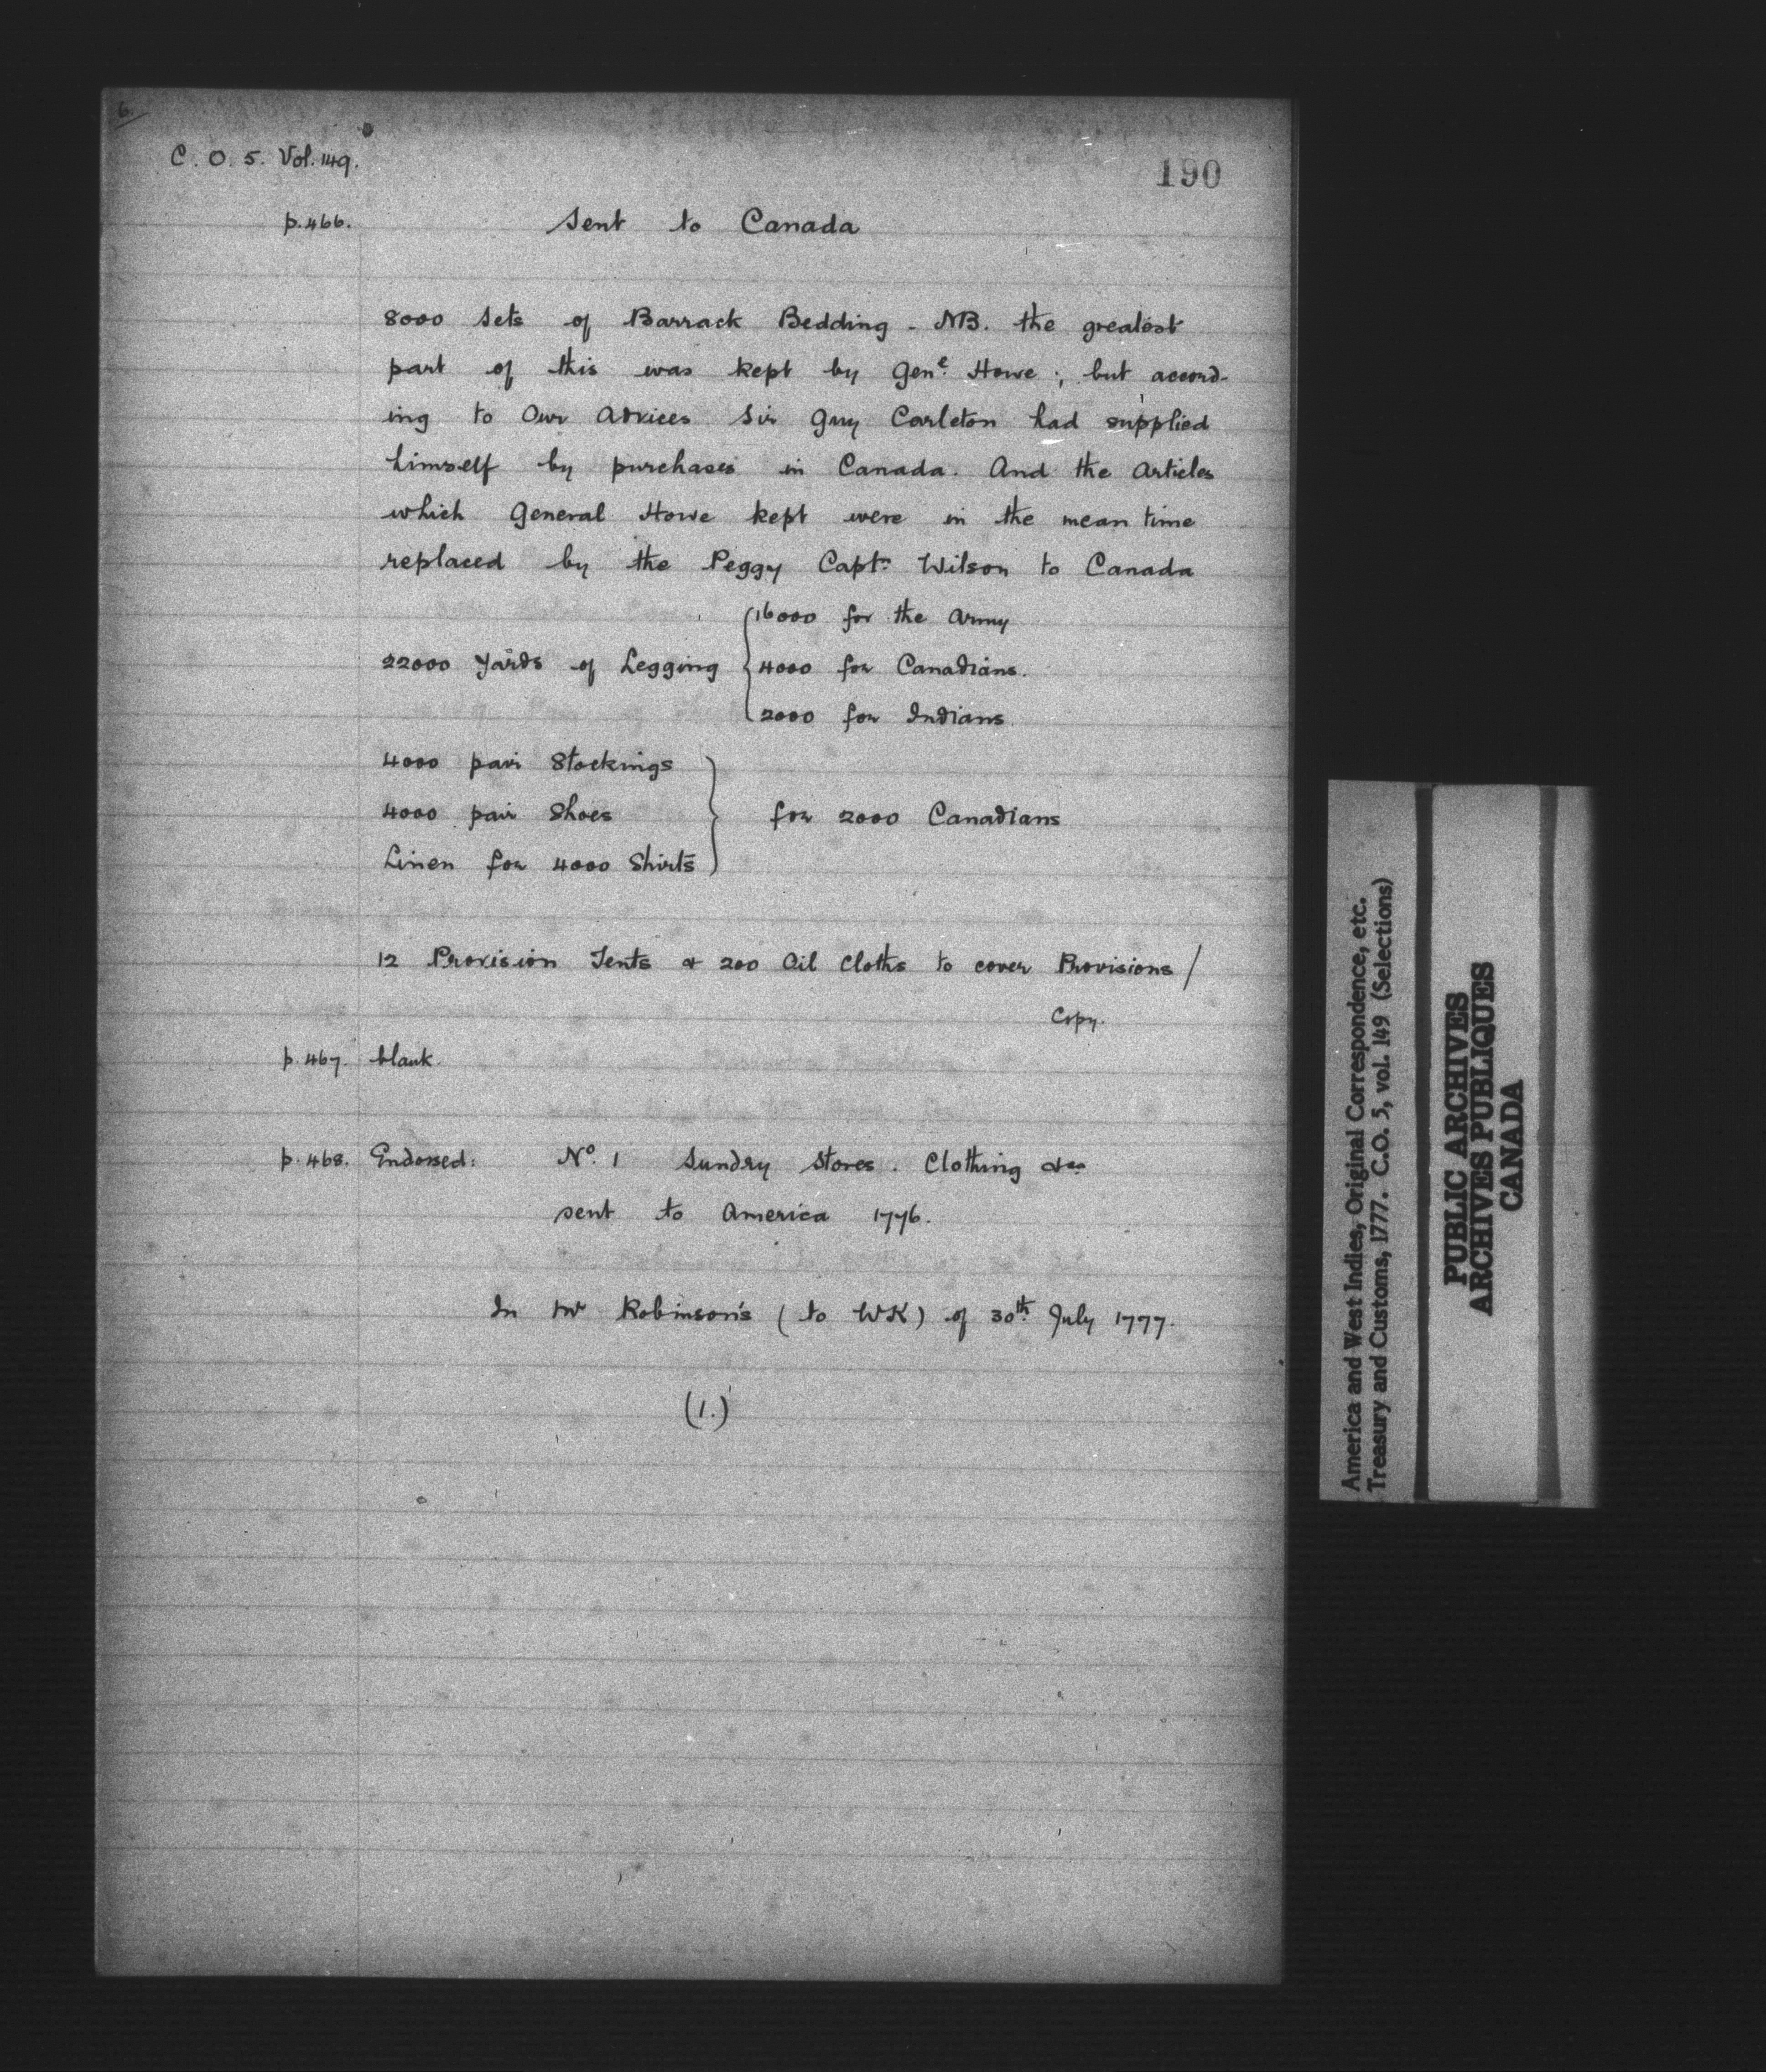 6.
C. O. 5. Vol. 149.
190
p. 466.
Sent to Canada
8000 Sets of Barrack Bedding - NB. the greatest
part of this was kept by Genl. Howe; but accord-
ing to Our Advices Sir Guy Carleton had supplied
himself by purchases in Canada. And the Articles
which General Howe kept were in the mean time
replaced by the Peggy Captn. Wilson to Canada
22000 Yards of Legging
16000 for the Army
4000 for Canadians.
2000 for Indians.
4000 pair Stockings
4000 pair Shoes
Linen for 4000 Shirts
for 2000 Canadians
12 Provision Tents & 200 Oil Cloths to cover Provisions /
Copy.
p. 467. blank.
p. 468. Endorsed: No. 1 Sundry Stores. Clothing &ca
sent to America 1776.
In Mr Robinson's (to WK) of 30th. July 1777.
(1.)
America and West Indies, Original Correspondence, etc.
Treasury and Customs, 1777. C.O. 5, vol. 149 (Selections)
PUBLIC ARCHIVES
ARCHIVES PUBLIQUES
CANADA